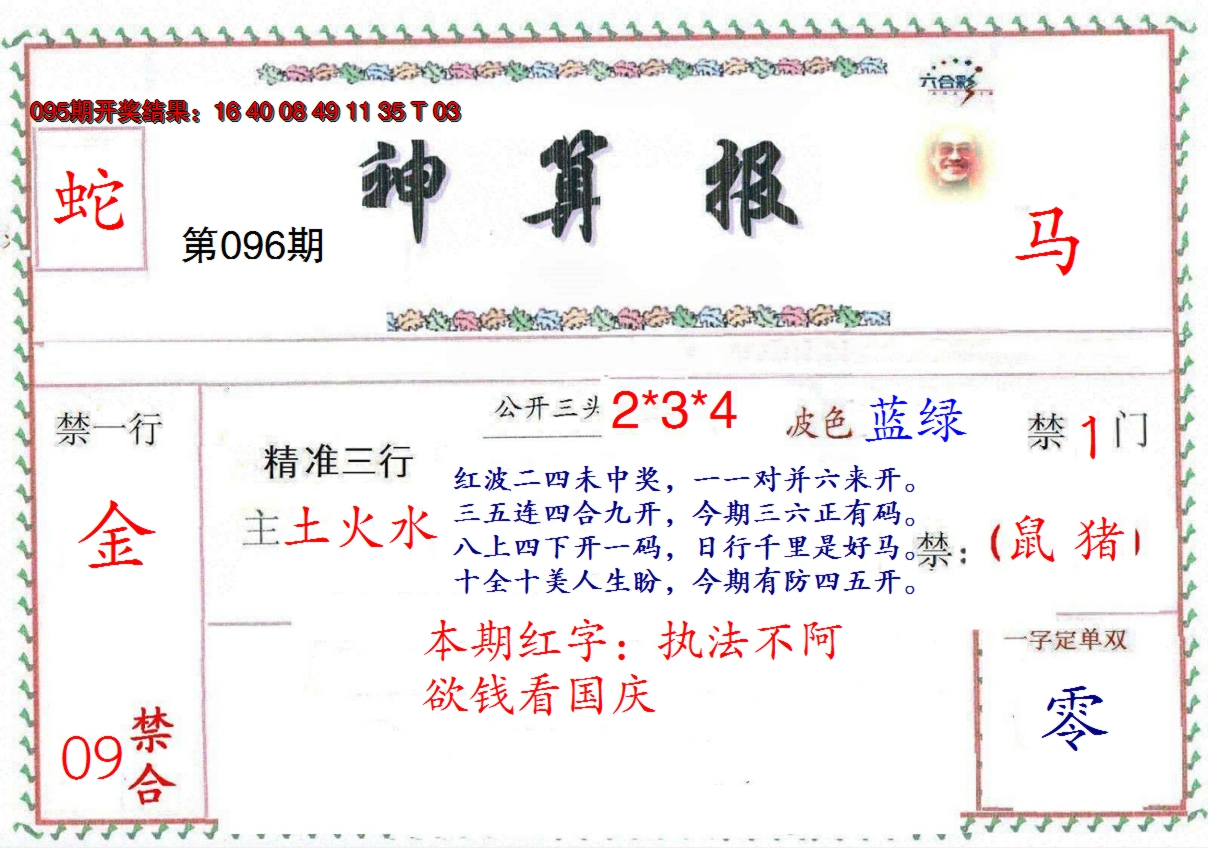 六合彩
095期开奖结果：16 40 08 49 11 35 T 03
神算报
蛇
第096期
马
禁一行
金
09禁合
精准三行
主土火水
公开三头 2*3*4
波色 蓝绿
禁1门
红波二四未中奖，一一对并六来开。
三五连四合九开，今期三六正有码。
八上四下开一码，日行千里是好马。
十全十美人生盼，今期有防四五开。
禁：（鼠 猪）
本期红字：执法不阿
欲钱看国庆
一字定单双
零